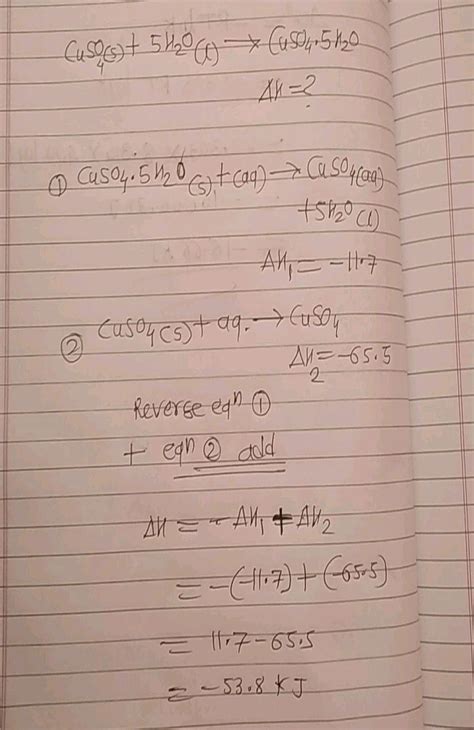 CuSO4(s) + 5H2O(l) → CuSO4.5H2O
ΔH = ?
① CuSO4.5H2O(s) + (aq) → CuSO4(aq)
+ 5H2O(l)
ΔH1 = -11.7
② CuSO4(s) + aq. → CuSO4
ΔH2 = -65.5
Reverse eqn ①
+ eqn ② add
ΔH = - ΔH1 + ΔH2
= -(-11.7) + (-65.5)
= 11.7 - 65.5
= -53.8 KJ